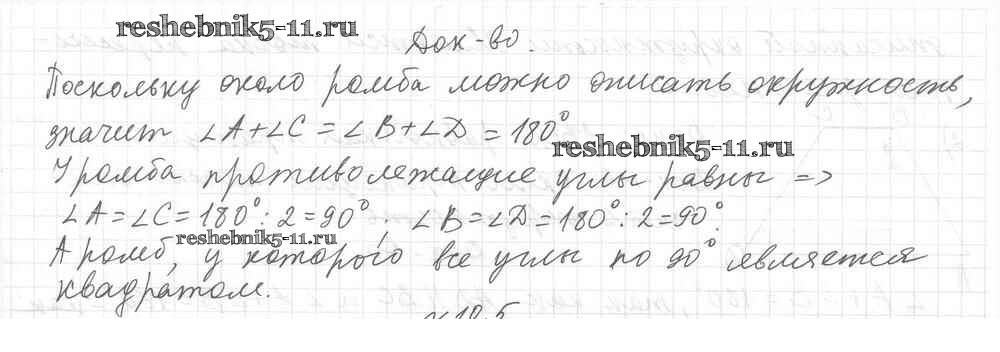 reshebnik5-11.ru
Док-во.
Поскольку около ромба можно описать окружность,
значит ∠A+∠C=∠B+∠D=180°.
reshebnik5-11.ru
У ромба противолежащие углы равны =>
∠A=∠C=180°:2=90°; ∠B=∠D=180°:2=90°.
reshebnik5-11.ru
А ромб, у которого все углы по 90° является
квадратом.